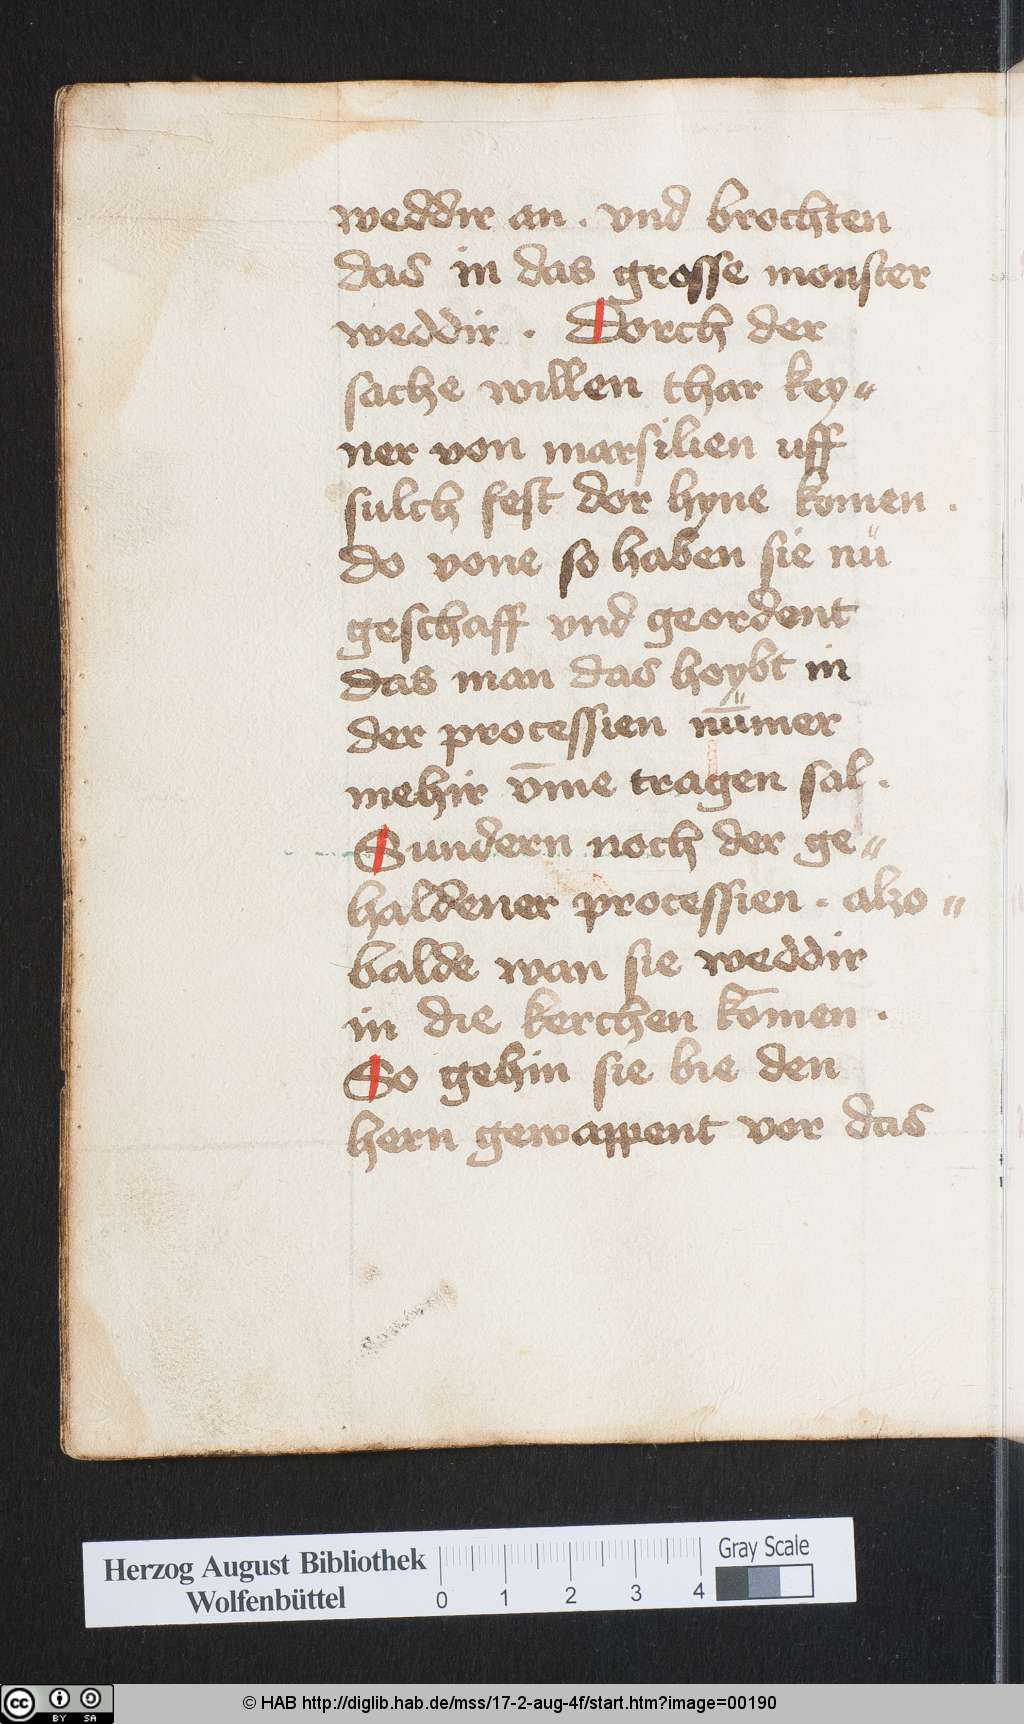 weddir an . vnd brochten
das in das grosse monster
weddir . Dorch der
sache willen thar key〃
ner von marsilien uff
sulch fest dor hyne komen .
do vone so haben sie nü
geschaff vnd geordent
das man das hoybt in
der processien nu̅mer
mehir v̅me tragen sal .
Sundern noch der ge〃
haldener processien . alzo〃
balde wan sie weddir
in die kerchen ko̅men .
So gehin sie bie den
hern gewappent vor das
Herzog August Bibliothek
Wolfenbüttel
0 1 2 3 4
Gray Scale
cc BY SA
© HAB http://diglib.hab.de/mss/17-2-aug-4f/start.htm?image=00190